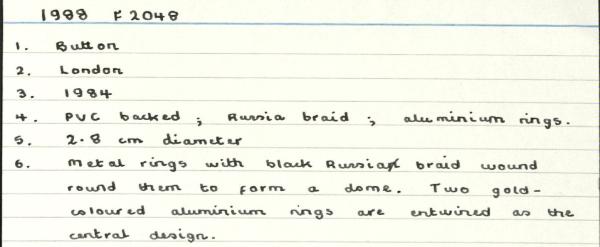 1988 F 2048
1. Button
2. London
3. 1984
4. PVC backed ; Russia braid ; aluminium rings.
5. 2.8 cm diameter
6. Metal rings with black Russian braid wound
round them to form a dome. Two gold-
coloured aluminium rings are entwined as the
central design.